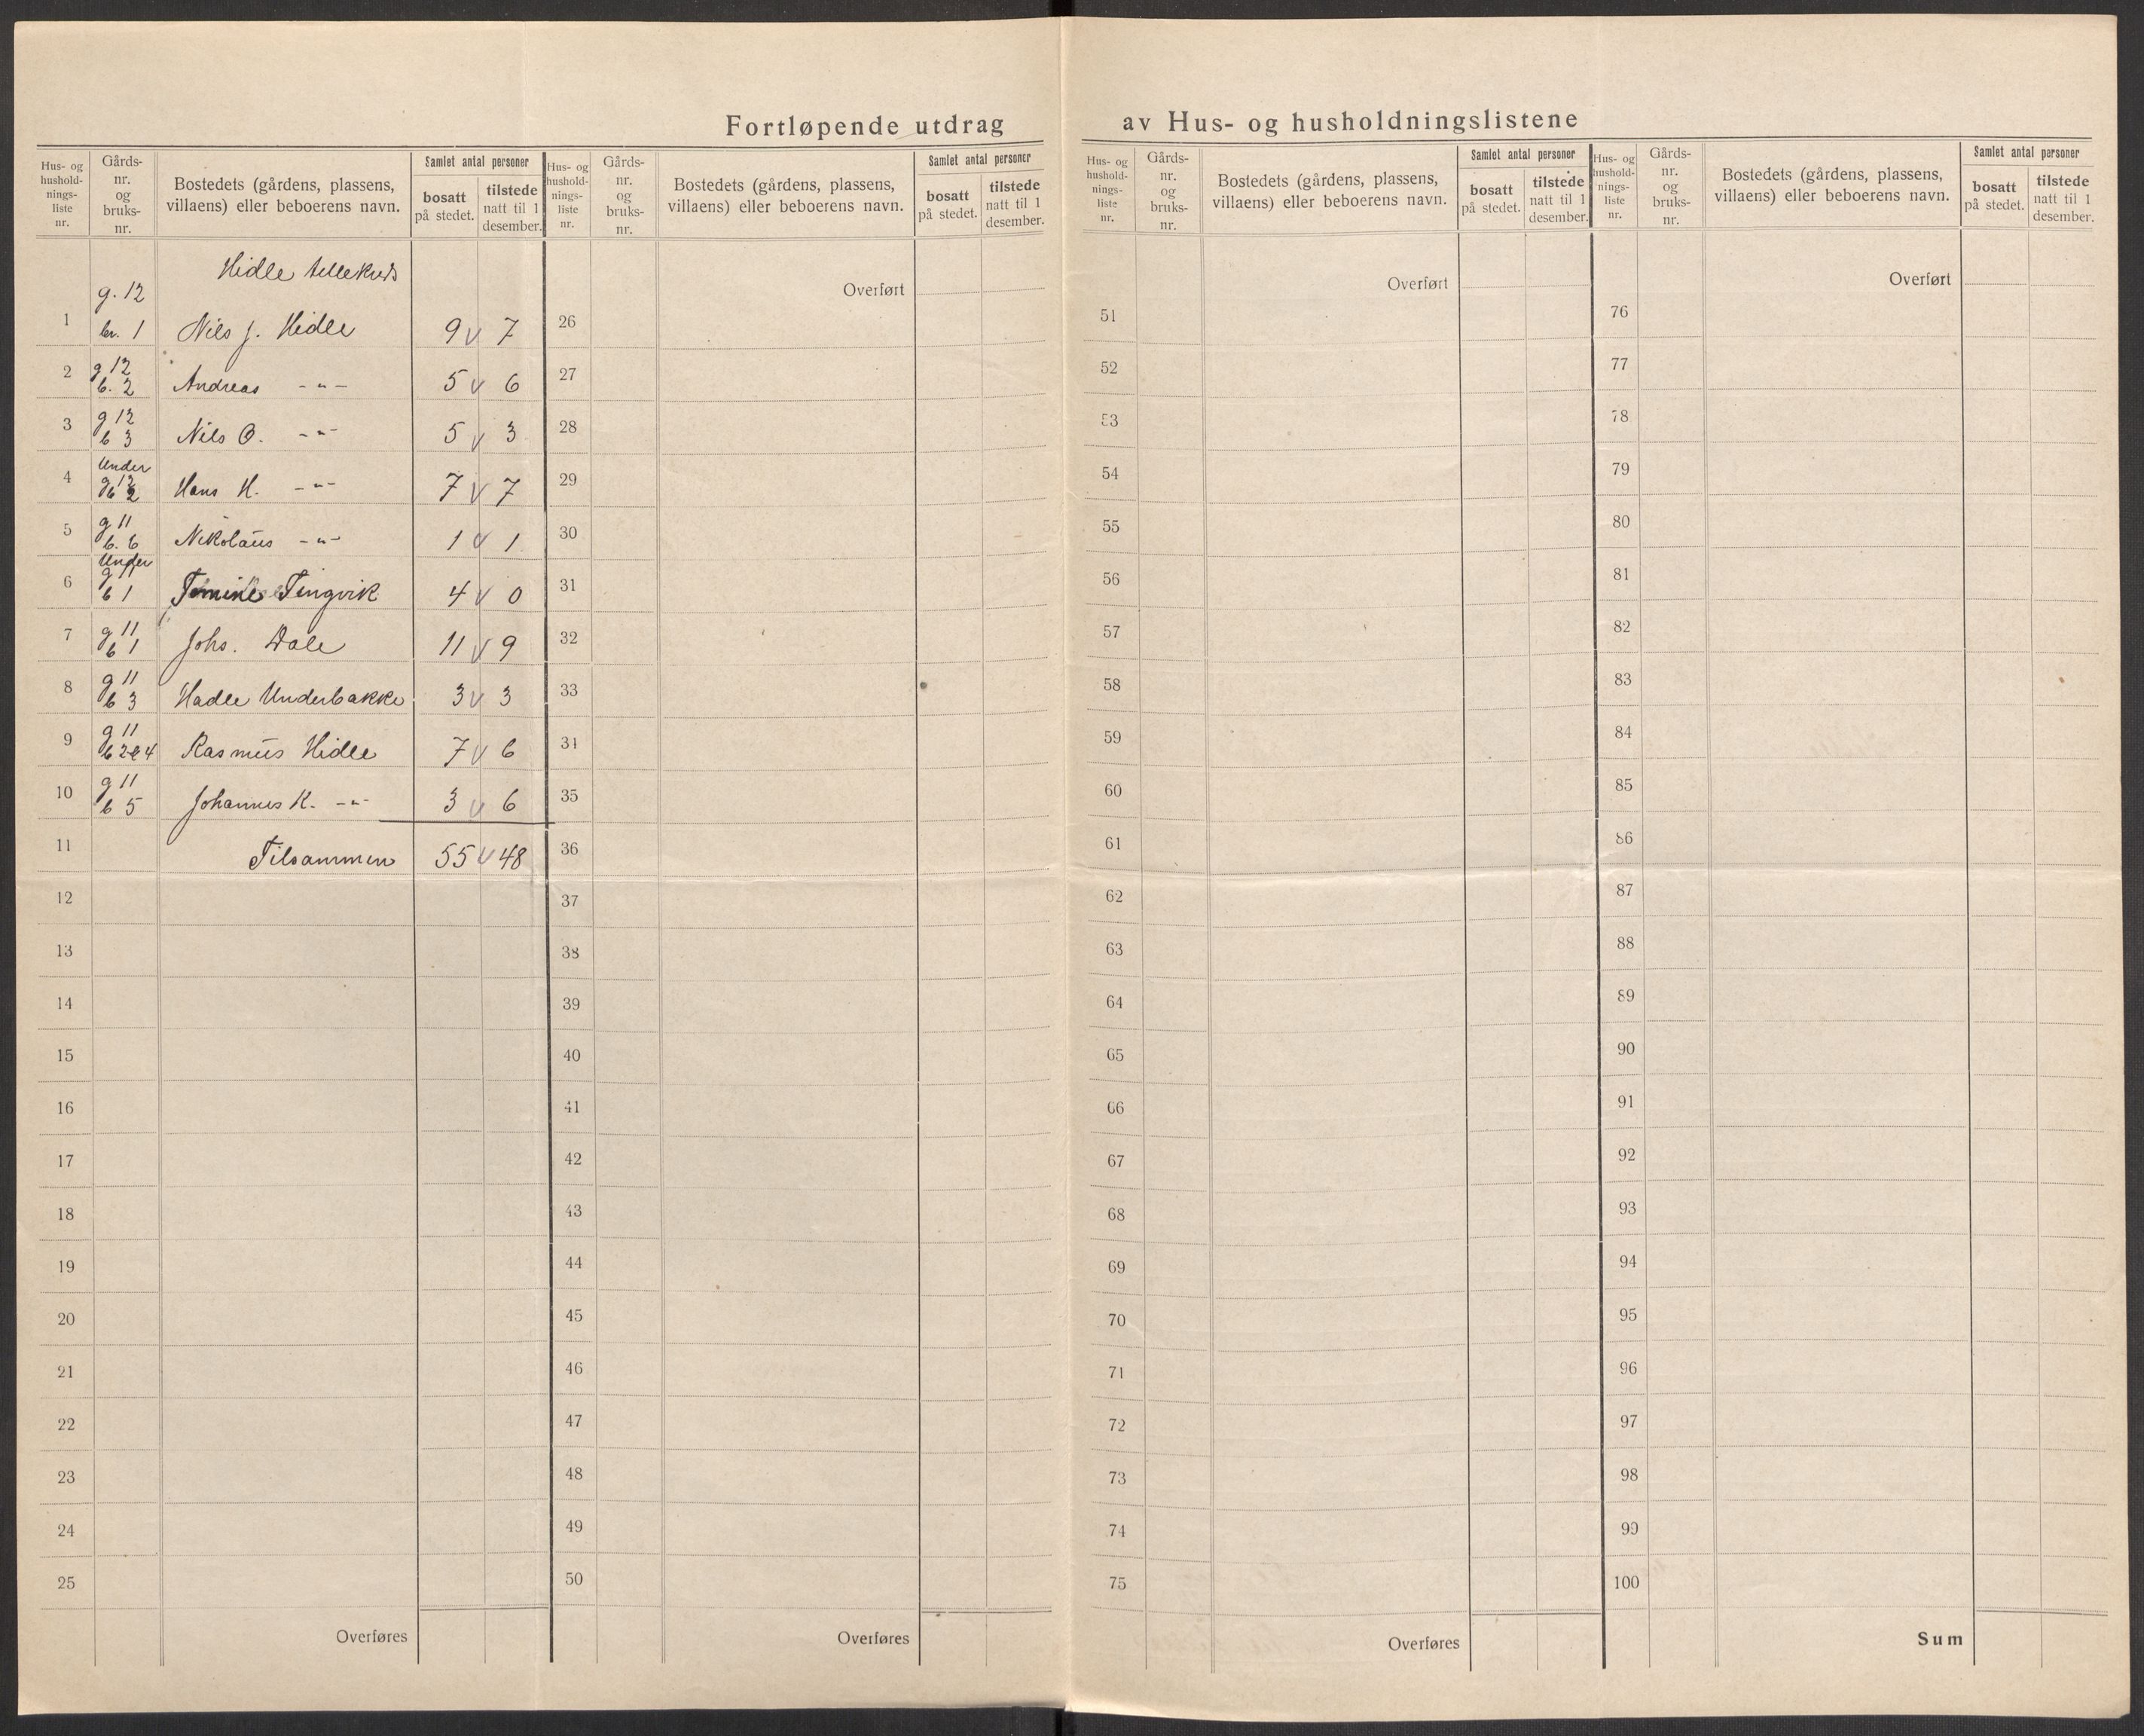 Fortløpende utdrag av Hus- og husholdningslistene
Hus- og husholdningsliste nr.
Gårdsnr. og bruksnr.
Bostedets (gårdens, plassens, villaens) eller beboerens navn.
Samlet antal personer
bosatt på stedet.
tilstede natt til 1 desember.
Hidle tellekreds
1 g. 12 br. 1 Nils J. Hidle 9 v 7
2 g 12 b. 2 Andreas -"- 5 v 6
3 g 12 b 3 Nils O. -"- 5 v 3
4 Under g 12 b 2 Hans H. -"- 7 v 7
5 g 11 b. 6 Nikolaus -"- 1 v 1
6 Under g 11 b 1 Tingvik 4 v 0
7 g 11 b 1 Johs. Dale 11 v 9
8 g 11 b 3 Hadle Underbakke 3 v 3
9 g 11 b 2 & 4 Rasmus Hidle 7 v 6
10 g 11 b 5 Johannes K. -"- 3 v 6
11 Tilsammen 55 v 48
12
13
14
15
16
17
18
19
20
21
22
23
24
25
Overføres
Hus- og husholdningsliste nr.
Gårdsnr. og bruksnr.
Bostedets (gårdens, plassens, villaens) eller beboerens navn.
Samlet antal personer
bosatt på stedet.
tilstede natt til 1 desember.
Overført
26
27
28
29
30
31
32
33
34
35
36
37
38
39
40
41
42
43
44
45
46
47
48
49
50
Overføres
Hus- og husholdningsliste nr.
Gårdsnr. og bruksnr.
Bostedets (gårdens, plassens, villaens) eller beboerens navn.
Samlet antal personer
bosatt på stedet.
tilstede natt til 1 desember.
Overført
51
52
53
54
55
56
57
58
59
60
61
62
63
64
65
66
67
68
69
70
71
72
73
74
75
Overføres
Hus- og husholdningsliste nr.
Gårdsnr. og bruksnr.
Bostedets (gårdens, plassens, villaens) eller beboerens navn.
Samlet antal personer
bosatt på stedet.
tilstede natt til 1 desember.
Overført
76
77
78
79
80
81
82
83
84
85
86
87
88
89
90
91
92
93
94
95
96
97
98
99
100
Sum